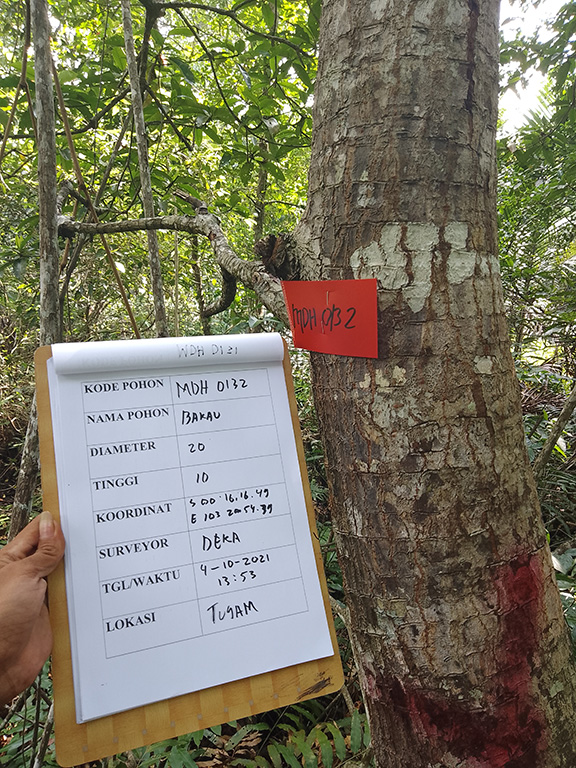 MDH 0132
MDH 0131
KODE POHON MDH 0132
NAMA POHON BAKAU
DIAMETER 20
TINGGI 10
KOORDINAT S 00.16.16.49
E 103 20 54.39
SURVEYOR DEKA
TGL/WAKTU 4-10-2021
13:53
LOKASI TUGAM